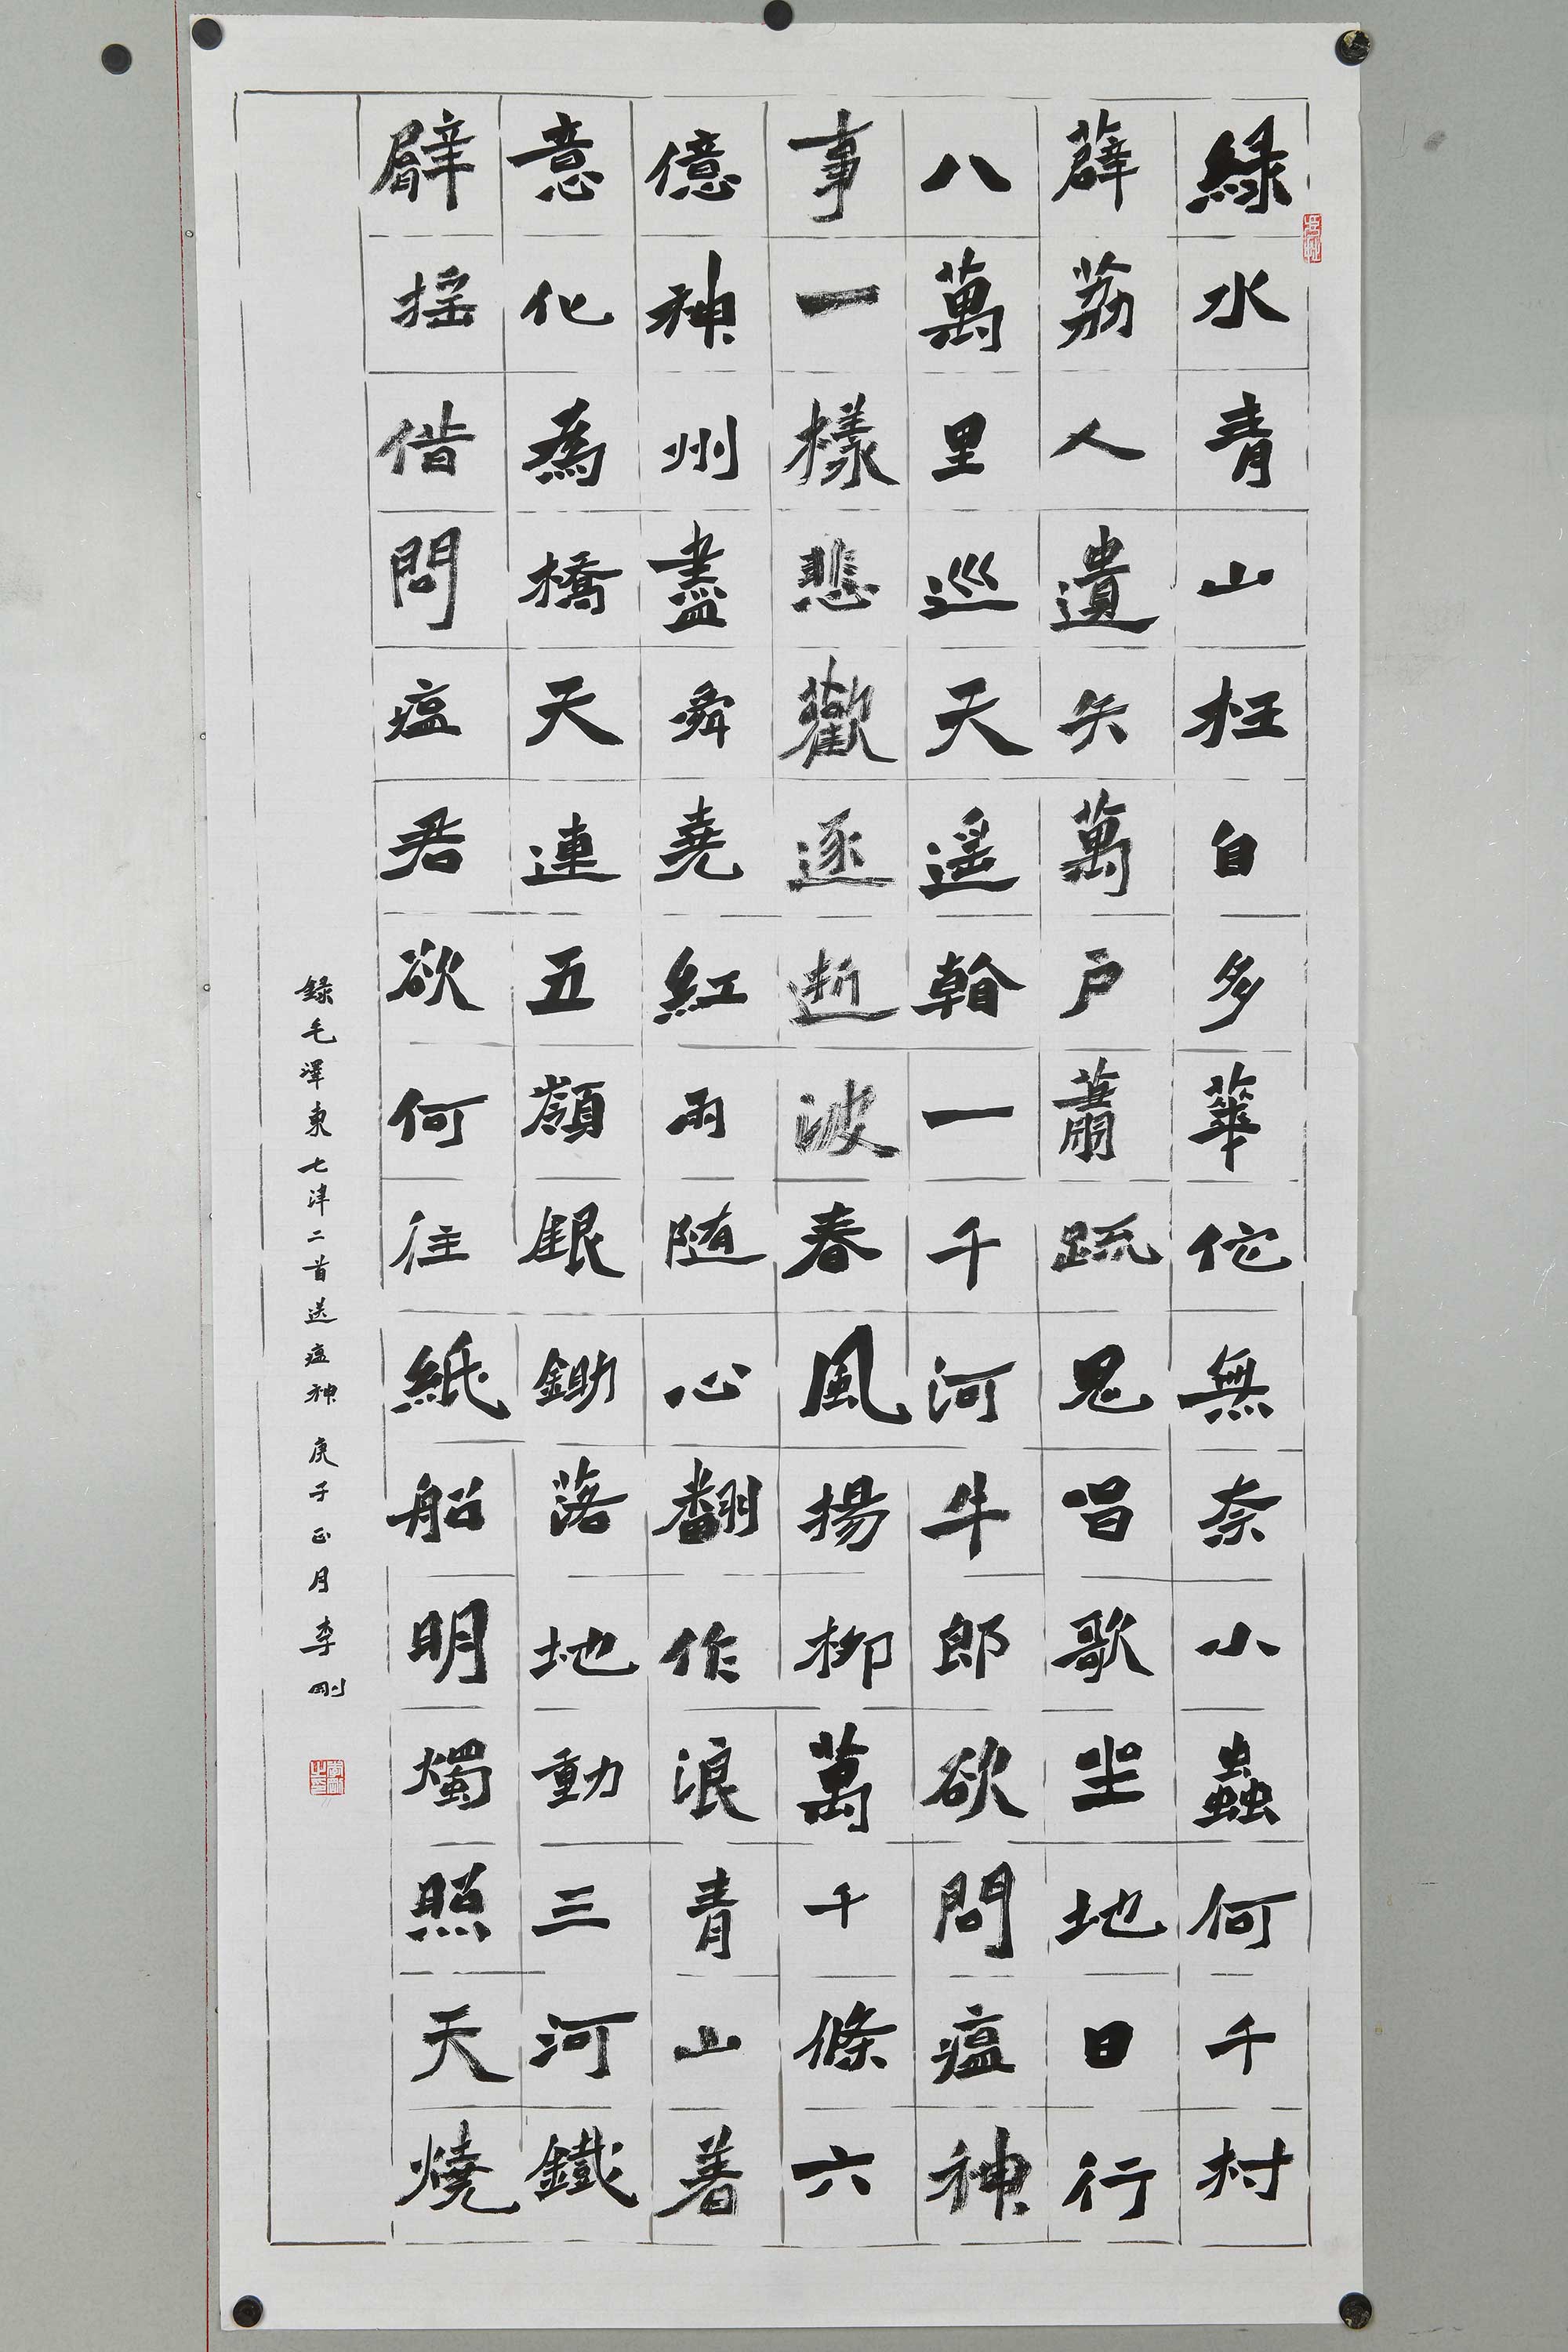 綠水青山枉自多華佗無奈小蟲何千村
薜荔人遺矢萬戶蕭疏鬼唱歌坐地日行
八萬里巡天遥翰一千河牛郎欲問瘟神
事一樣悲歡逐逝波春風揚柳萬千條六
億神州盡舜堯紅雨隨心翻作浪青山著
意化為橋天連五嶺銀鋤落地動三河鐵
臂摇借問瘟君欲何往紙船明燭照天燒
録毛澤東七律二首送瘟神 庚子正月李剛